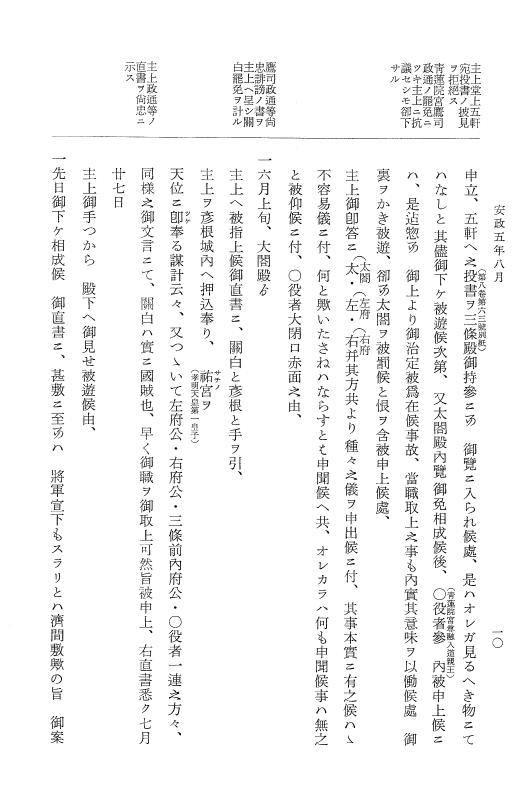 安政五年八月
一〇
主上堂上五軒
宛投書ノ披見
ヲ拒絶ス
青蓮院宮鷹司
政通ノ罷免ニ
ツキ主上ニ抗
議セシモ却下
サル
鷹司政通等尚
忠誹謗ノ書ヲ
主上ヘ呈シ關
白罷免ヲ計ル
主上政通等ノ
直書ヲ尚忠ニ
示ス
申立、五軒へ之投書ヲ(第八卷第六三號別紙)三條殿御持參ニ而 御覽ニ入られ候處、是ハオレガ見るへき物ニて
ハなしと其儘御下ケ被遊候次第、又太閤殿內覽御免相成候後、〇役者(青蓮院宮尊融入道親王)參 內被申上候ニ
ハ、是迠惣而 御上より御治定被爲在候事故、當職取上之事も內實其意味ヲ以働候處 御
裏ヲかき被遊、卻而太閤ヲ被罰候と恨ヲ含被申上候處、
主上御卽答ニ(太閤)太・(左府)左・(右府)右幷其方共より種々之儀ヲ申出候ニ付、其事本實ニ有之候ハヽ
不容易儀ニ付、何と歟いたさねハならすとも申聞候へ共、オレカラハ何も申聞候事ハ無之
と被仰候ニ付、〇役者大閉口赤面之由、
一六月上旬、大閤殿ゟ
主上へ被指上候御直書ニ、關白と彥根と手ヲ引、
主上ヲ彥根城內へ押込奉り、 祐宮(サチノ)(孝明天皇第一皇子)ヲ
天位ニ卽(ツケ)奉る謀計云々、又つゝいて左府公・右府公・三條前內府公・〇役者一連之方々、
同樣之御文言ニて、關白ハ實ニ國賊也、早く御職ヲ御取上可然旨被申上、右直書悉ク七月
廿七日
主上御手つから 殿下へ御見せ被遊候由、
一先日御下ケ相成候 御直書ニ、甚敷ニ至而ハ 將軍宣下もスラリとハ濟間敷歟の旨 御案